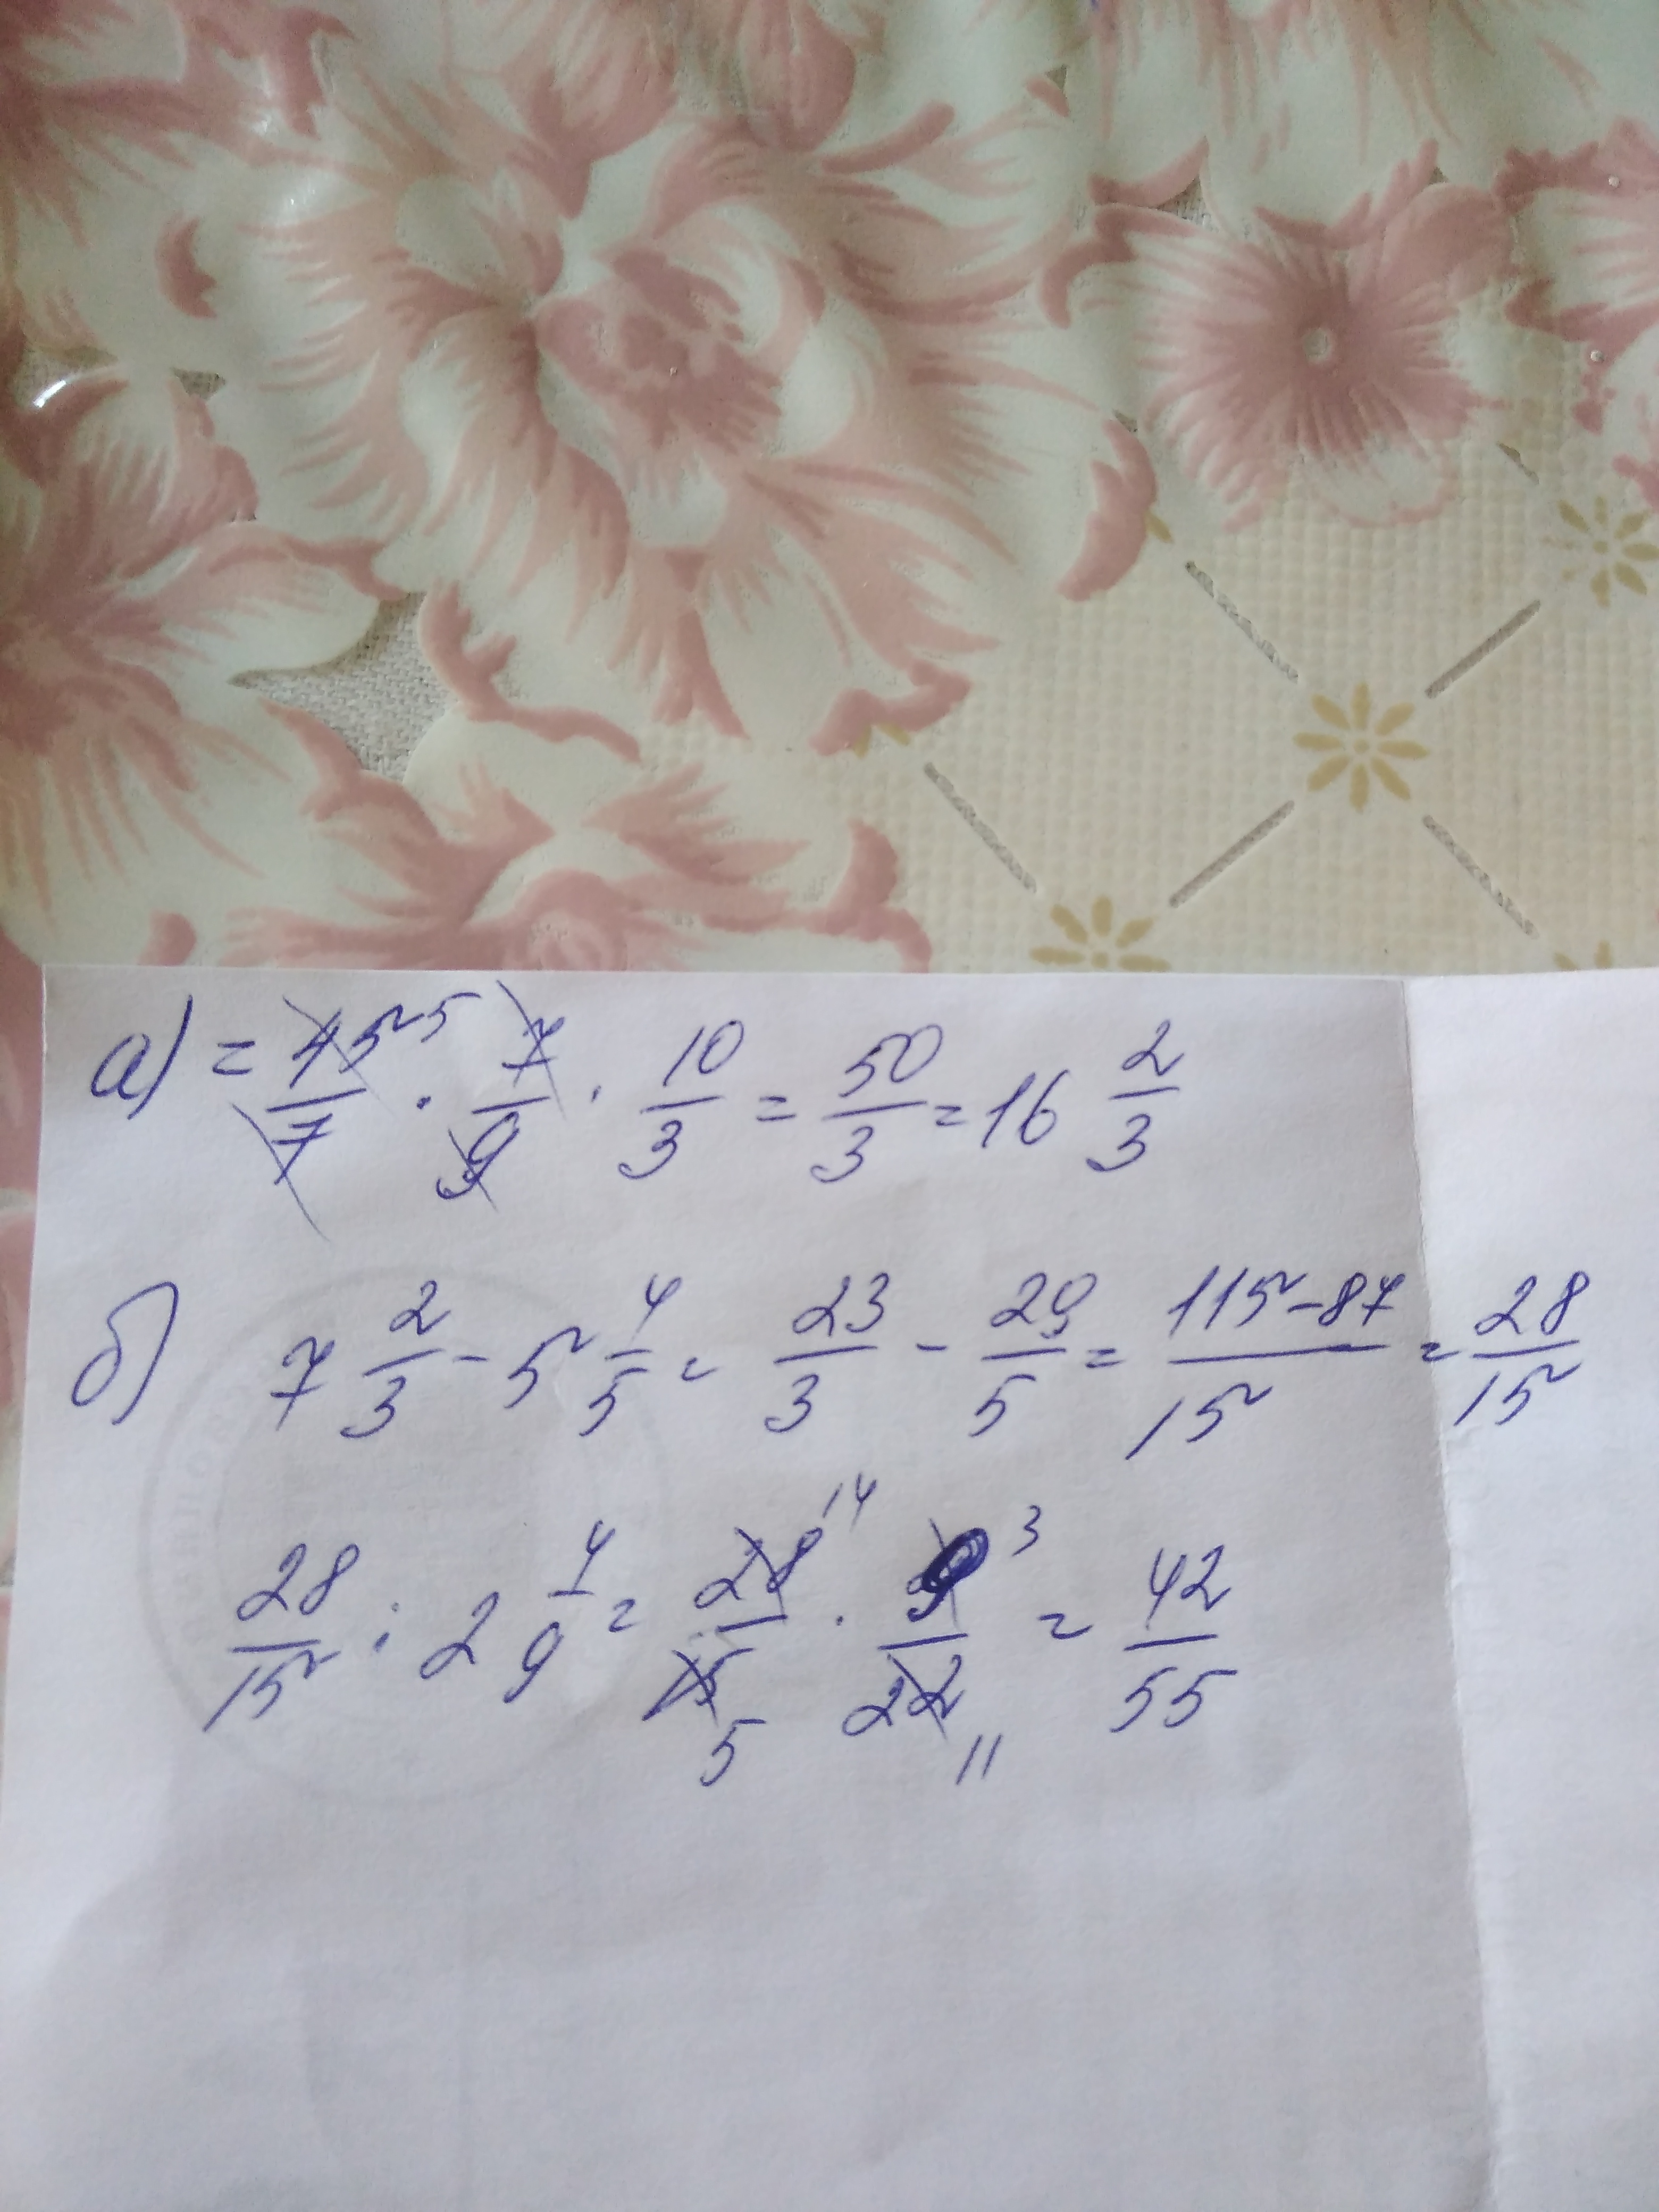 а) = 45/7 5 · 7/9 · 10/3 = 50/3 = 16 2/3
б) 7 2/3 - 5 4/5 = 23/3 - 29/5 = 115-87/15 = 28/15
28/15 : 2 4/9 = 28/15 14 5 · 9/22 3 11 = 42/55